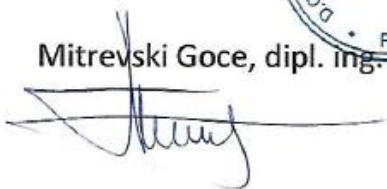 D.O.
Mitrevski Goce, dipl. ing.